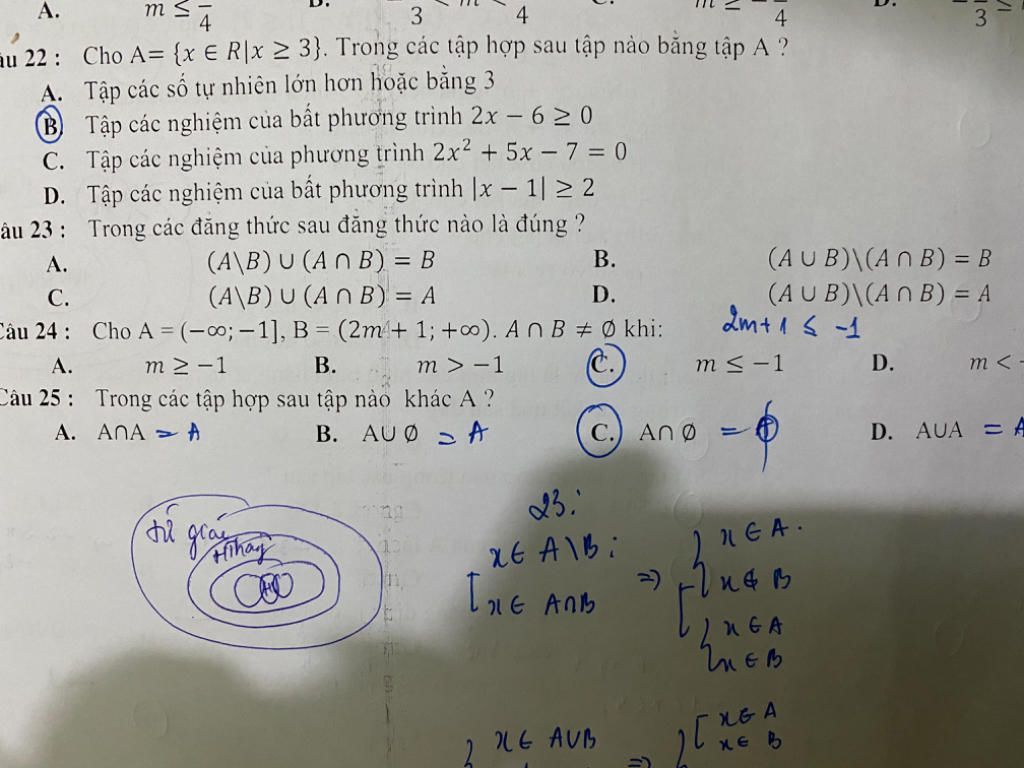 A. m ≤ /4 B. 3 < m 4 C. m ≥ - 4 D. 3 ≤
âu 22 : Cho A= {x ∈ R|x ≥ 3}. Trong các tập hợp sau tập nào bằng tập A ?
A. Tập các số tự nhiên lớn hơn hoặc bằng 3
B. Tập các nghiệm của bất phương trình 2x − 6 ≥ 0
C. Tập các nghiệm của phương trình 2x² + 5x − 7 = 0
D. Tập các nghiệm của bất phương trình |x − 1| ≥ 2
âu 23 : Trong các đẳng thức sau đẳng thức nào là đúng ?
A. (A\B) ∪ (A ∩ B) = B B. (A ∪ B)\(A ∩ B) = B
C. (A\B) ∪ (A ∩ B) = A D. (A ∪ B)\(A ∩ B) = A
Câu 24 : Cho A = (−∞; −1], B = (2m + 1; +∞). A ∩ B ≠ ∅ khi: 2m+1 ≤ -1
A. m ≥ −1 B. m > −1 C. m ≤ −1 D. m < -
Câu 25 : Trong các tập hợp sau tập nào khác A ?
A. A∩A = A B. A∪∅ = A C. A∩∅ = ϕ D. A∪A = A
23:
tứ giác
x ∈ A\B ; x ∈ A.
Hthang
=> x ∉ B
x ∈ A∩B
x ∈ A
x ∈ B
x ∈ A
x ∈ A∪B => x ∈ B